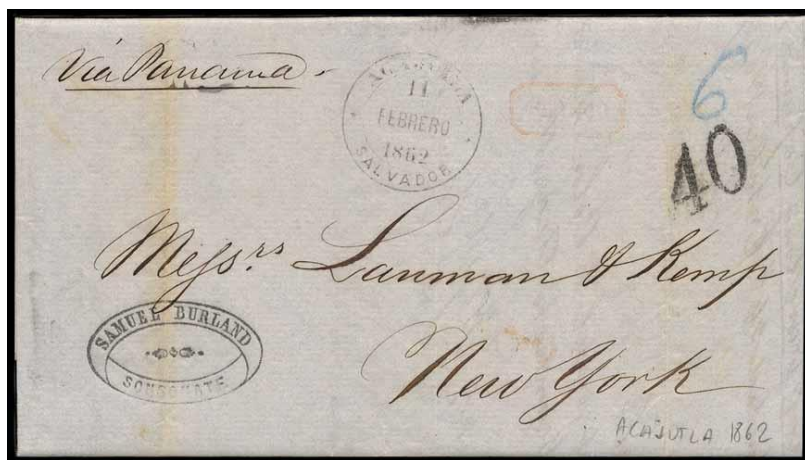 Via Panama.
ACAJUTLA
11
FEBRERO
1862
SALVADOR
6
40
Messrs Lanman & Kemp
New York
SAMUEL BURLAND
SONSONATE
ACAJUTLA 1862